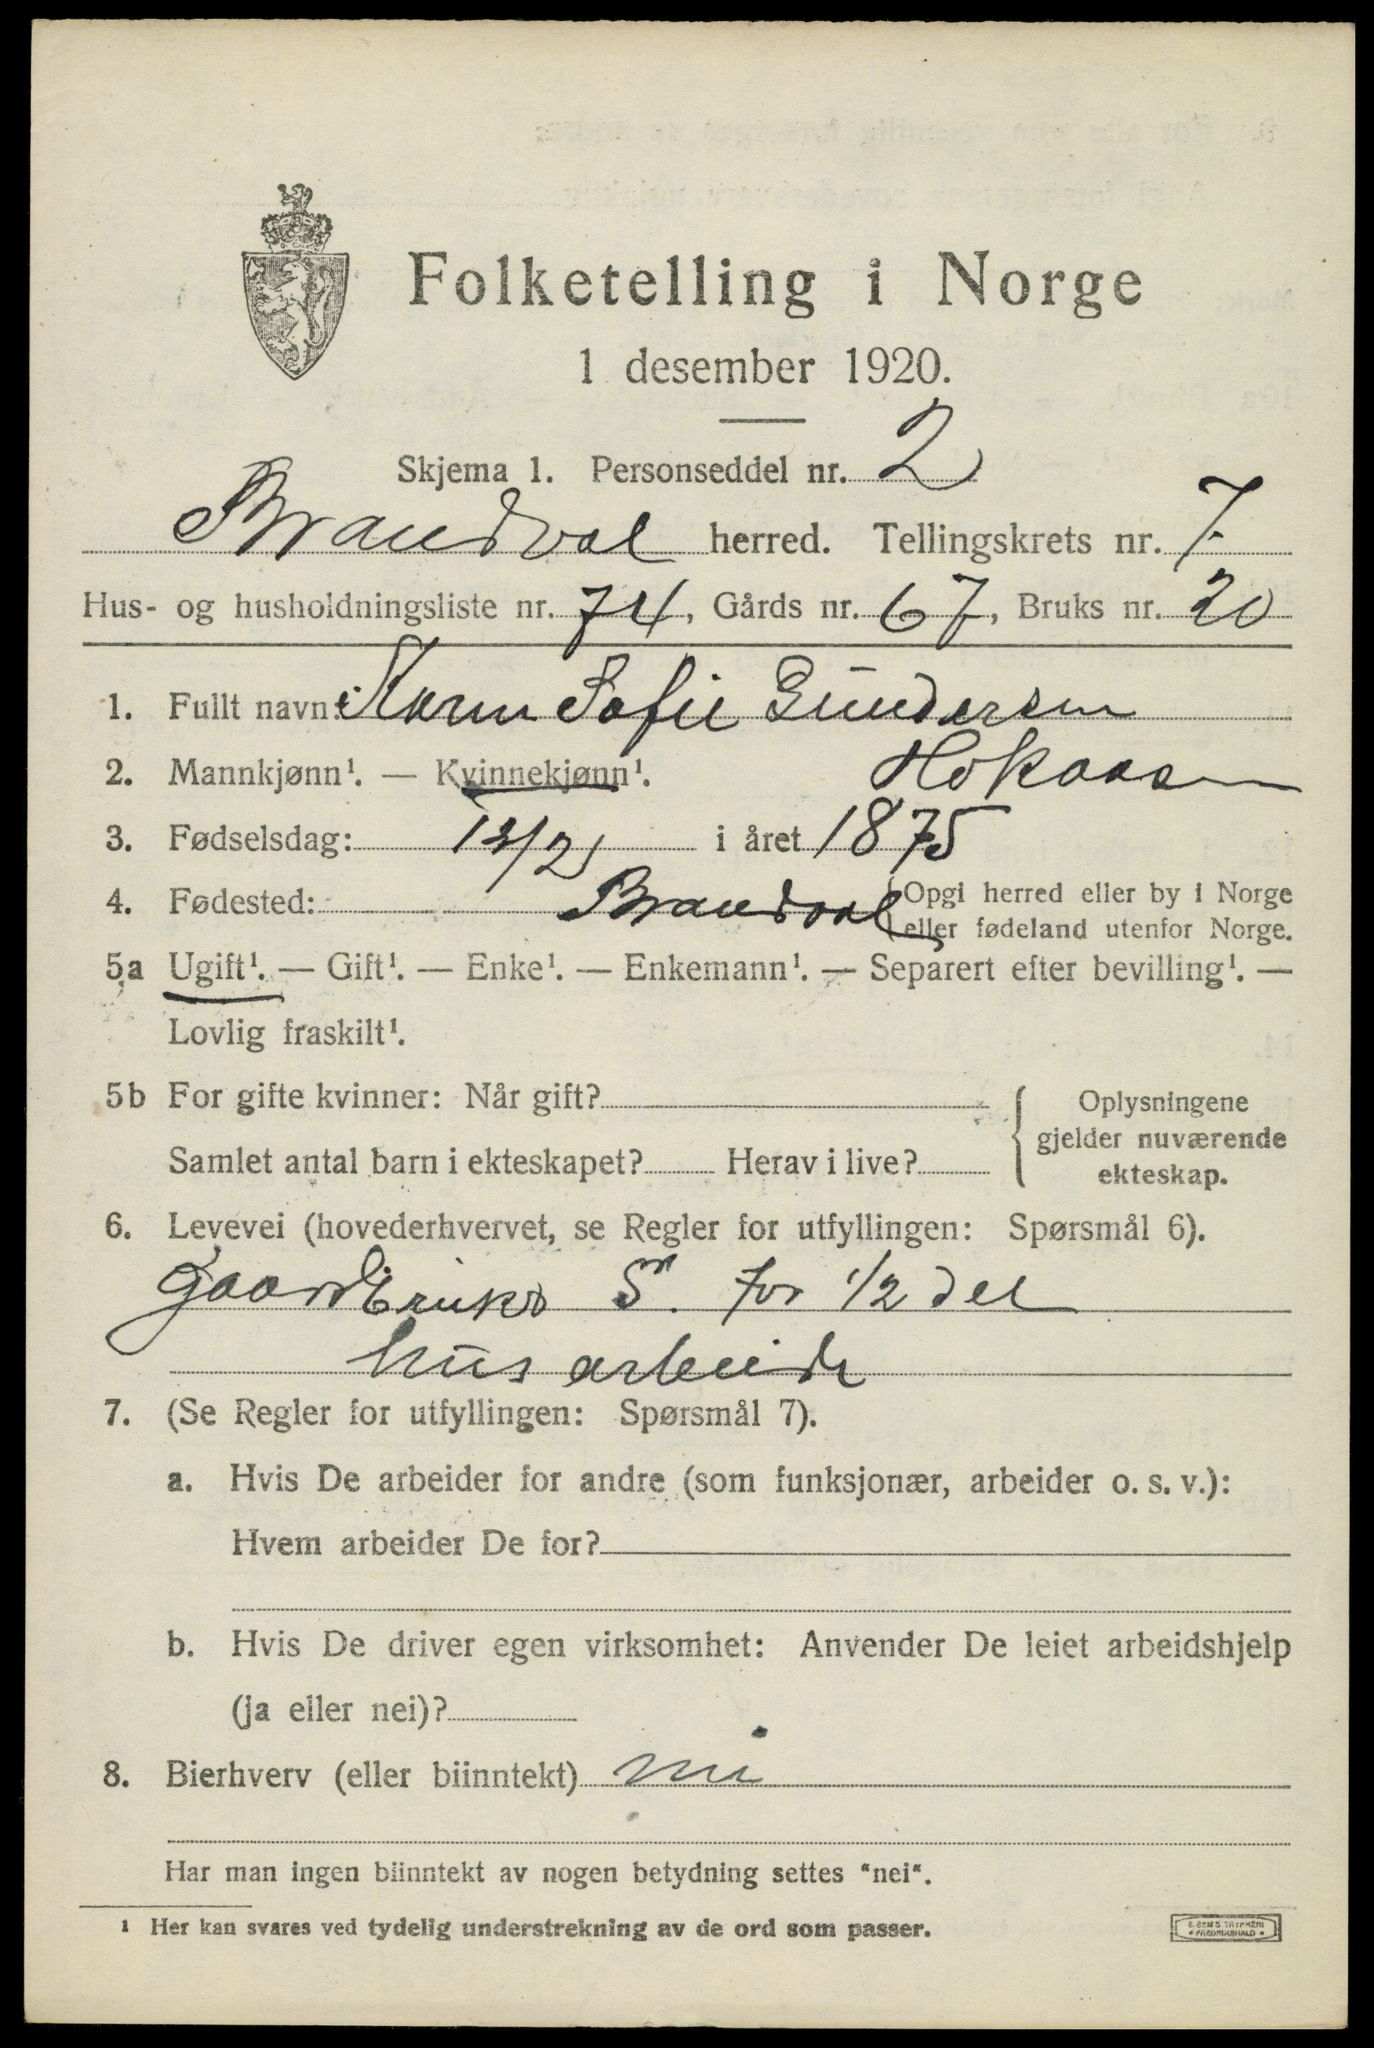 Folketelling i Norge
1 desember 1920.
Skjema 1. Personseddel nr. 2
Brandval herred. Tellingskrets nr. 7.
Hus- og husholdningsliste nr. 74, Gårds nr. 67, Bruks nr. 20
1. Fullt navn: Karen Sofie Gundersen
2. Mannkjønn¹. — Kvinnekjønn¹. Hokaasen
3. Fødselsdag: 13/2 i året 1875
4. Fødested: Brandval (Opgi herred eller by i Norge
eller fødeland utenfor Norge.
5a Ugift¹. — Gift¹. — Enke¹. — Enkemann¹. — Separert efter bevilling¹. —
Lovlig fraskilt¹.
5b For gifte kvinner: Når gift? Oplysningene
gjelder nuværende
Samlet antal barn i ekteskapet? Herav i live? ekteskap.
6. Levevei (hovederhvervet, se Regler for utfyllingen: Spørsmål 6).
for 1/2 del
hus arbeide
7. (Se Regler for utfyllingen: Spørsmål 7).
a. Hvis De arbeider for andre (som funksjonær, arbeider o. s. v.):
Hvem arbeider De for?
b. Hvis De driver egen virksomhet: Anvender De leiet arbeidshjelp
(ja eller nei)?
8. Bierhverv (eller biinntekt) nei
Har man ingen biinntekt av nogen betydning settes "nei".
¹ Her kan svares ved tydelig understrekning av de ord som passer.